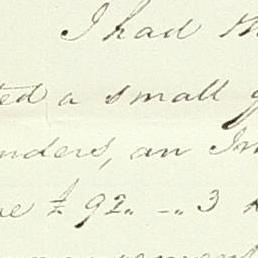 I had th
ted a small g
nders, an In
£ 92„ –„ 3